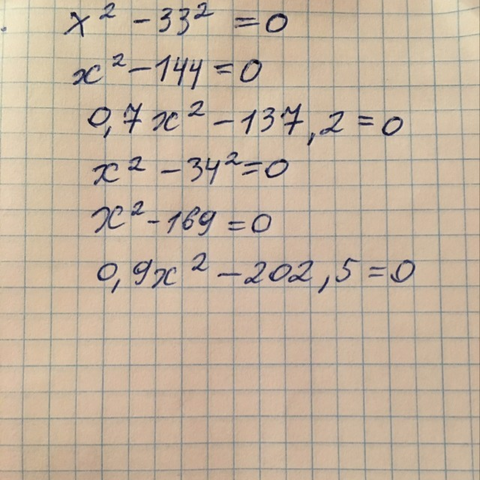 x² - 33² = 0
x² - 144 = 0
0,7x² - 137,2 = 0
x² - 34² = 0
x² - 169 = 0
0,9x² - 202,5 = 0